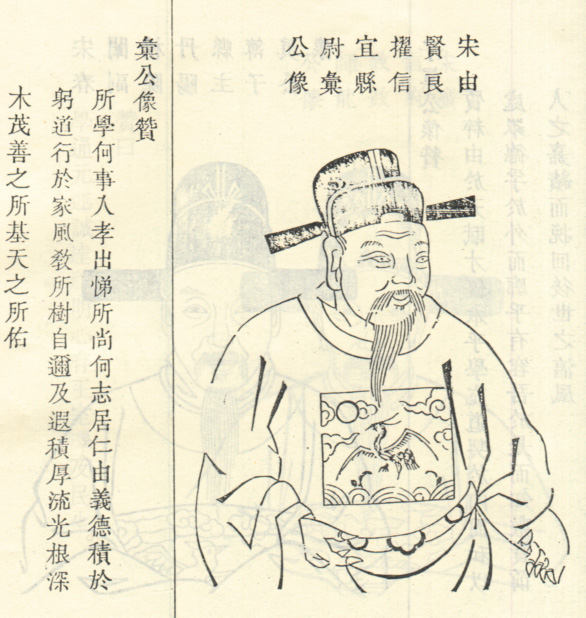 宋由
賢良
擢信
宜縣
尉彙
公像
彙公像贊
所學何事入孝出悌所尚何志居仁由義德積於
躬道行於家風教所樹自邇及遐積厚流光根深
木茂善之所基天之所佑